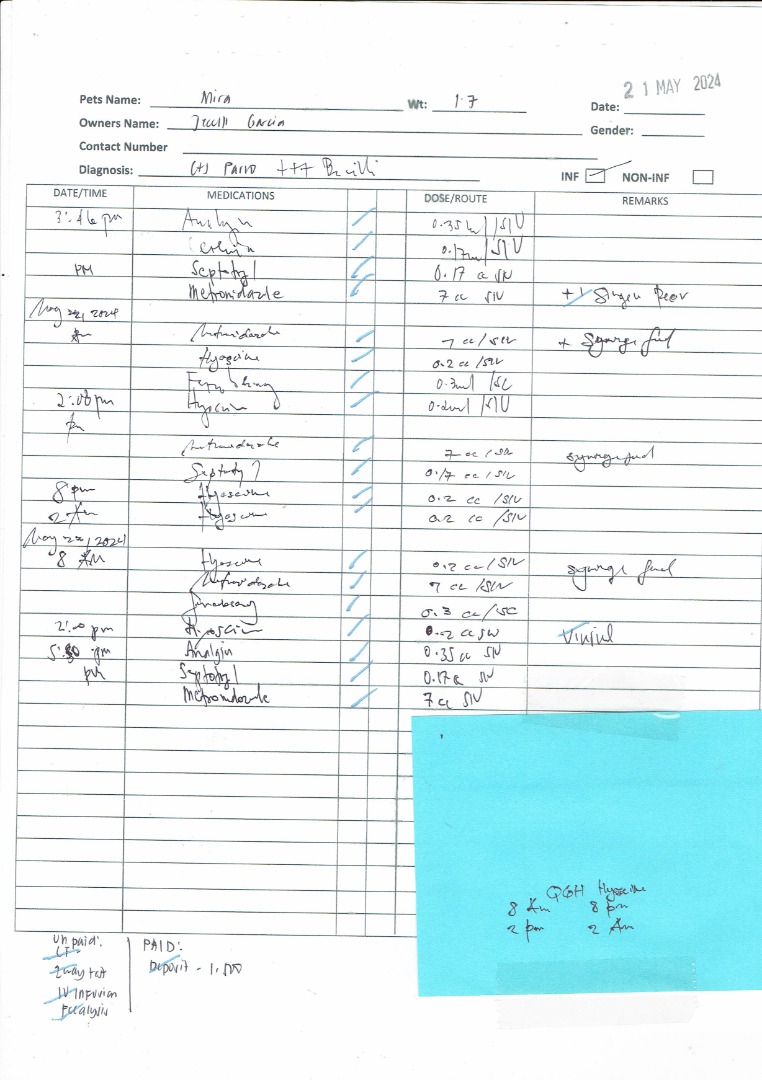 21 MAY 2024
Pets Name: Mira Wt: 1.7 Date:
Owners Name: Garcia Gender:
Contact Number
Diagnosis: (+) Parvo +++ Bacilli INF NON-INF
DATE/TIME MEDICATIONS DOSE/ROUTE REMARKS
3:46 pm Analgin 0.35ml/SIV
0.17ml/SIV
PM Septotryl 0.17 cc SIV
Metronidazole 7 cc SIV +1
May 22, 2024
Am Metronidazole 7 cc/SIV + Syringe feed
Hyoscine 0.2 cc/SIV
0.3ml/SC
2:00pm Hyoscine 0.2ml/SIV
pm
Metronidazole 7 cc/SIV syringe feed
Septotryl 0.17 cc/SIV
8pm Hyoscine 0.2 cc/SIV
2 Am Hyoscine 0.2 cc/SIV
8 AM Hyoscine 0.2 cc/SIV syringe feed
Metronidazole 7 cc/SIV
0.3 cc/SC
2:00 pm Hyoscine 0.2 cc SIV
5:30 pm Analgin 0.35 cc SIV
pm Septotryl 0.17 cc SIV
Metronidazole 7 cc SIV
Q6H Hyoscine
8 Am 8 pm
2 pm 2 Am
Unpaid: PAID:
CF
2way test Deposit - 1,500
IV Infusion
Fecalysis